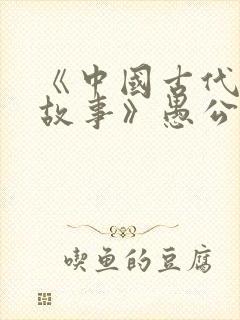 《中國古代
故事》愚公
喫鱼的豆腐